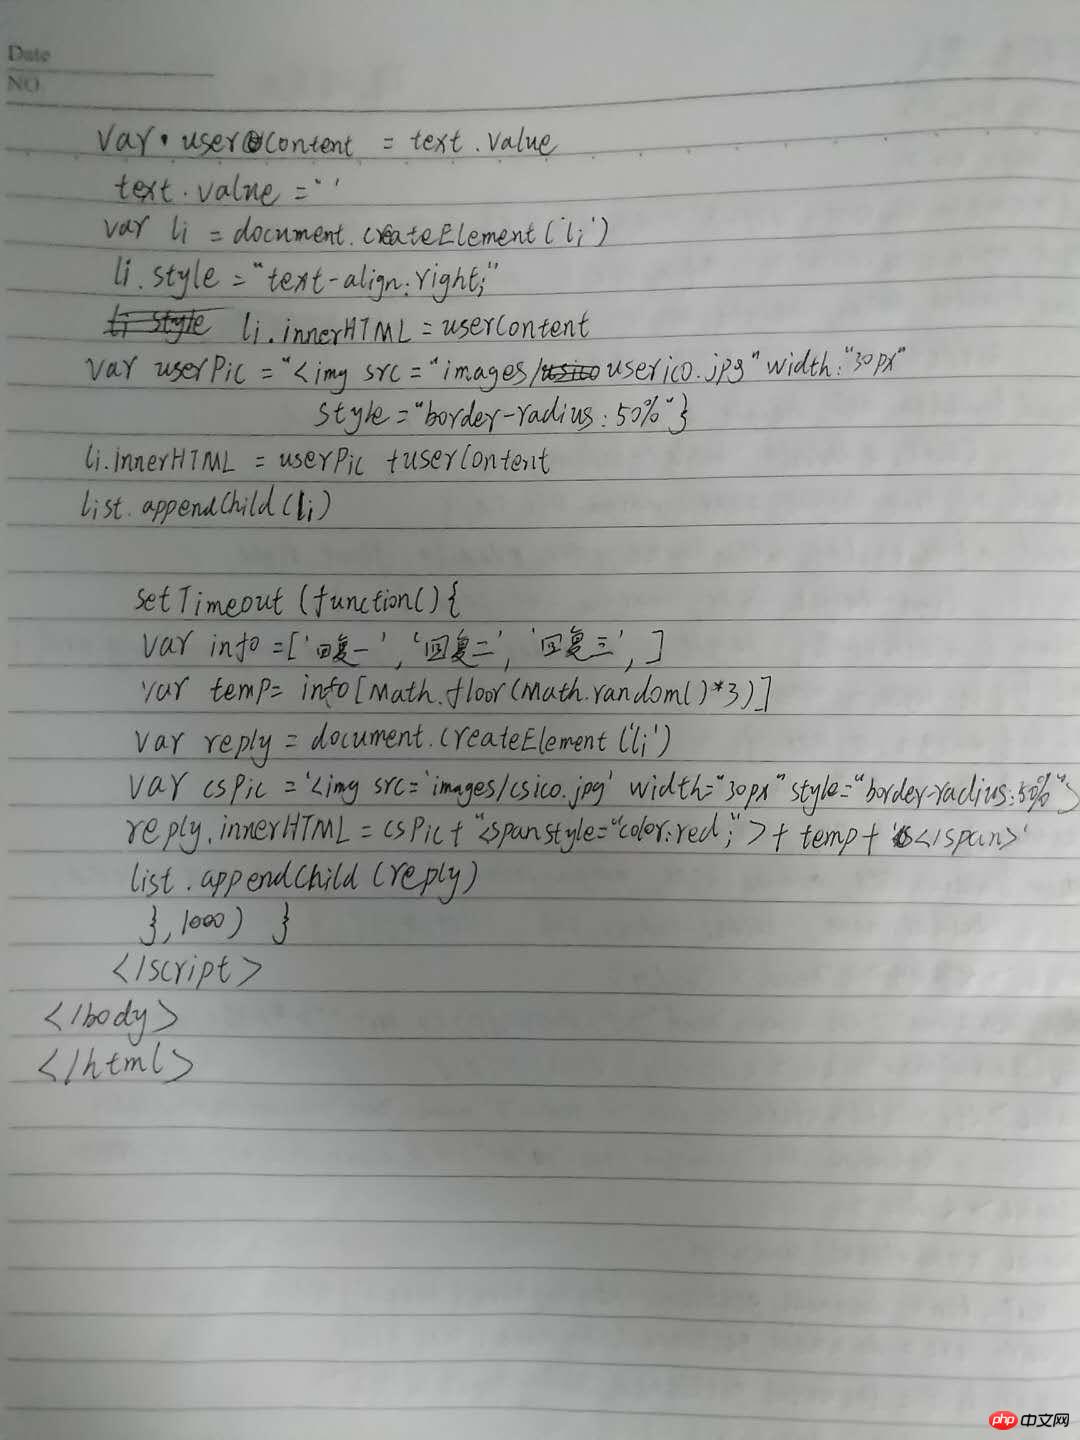 Date
NO.
var userContent = text.value
text.value = ''
var li = document.createElement('li')
li.style = "text-align:right;"
li style li.innerHTML = userContent
var userPic = "<img src = "images/userico.jpg" width:"30px"
style = "border-radius: 50%"}
li.innerHTML = userPic + userContent
list.appendChild(li)
setTimeout (function(){
var info = ['回复一', '回复二', '回复三',]
var temp = info[Math.floor(Math.random()*3)]
var reply = document.createElement('li')
var csPic = '<img src='images/csico.jpg' width="30px" style="border-radius:50%">
reply.innerHTML = csPic + "<span style="color:red;">+ temp + '</span>'
list.appendChild(reply)
},1000) }
</script>
</body>
</html>
php 中文网